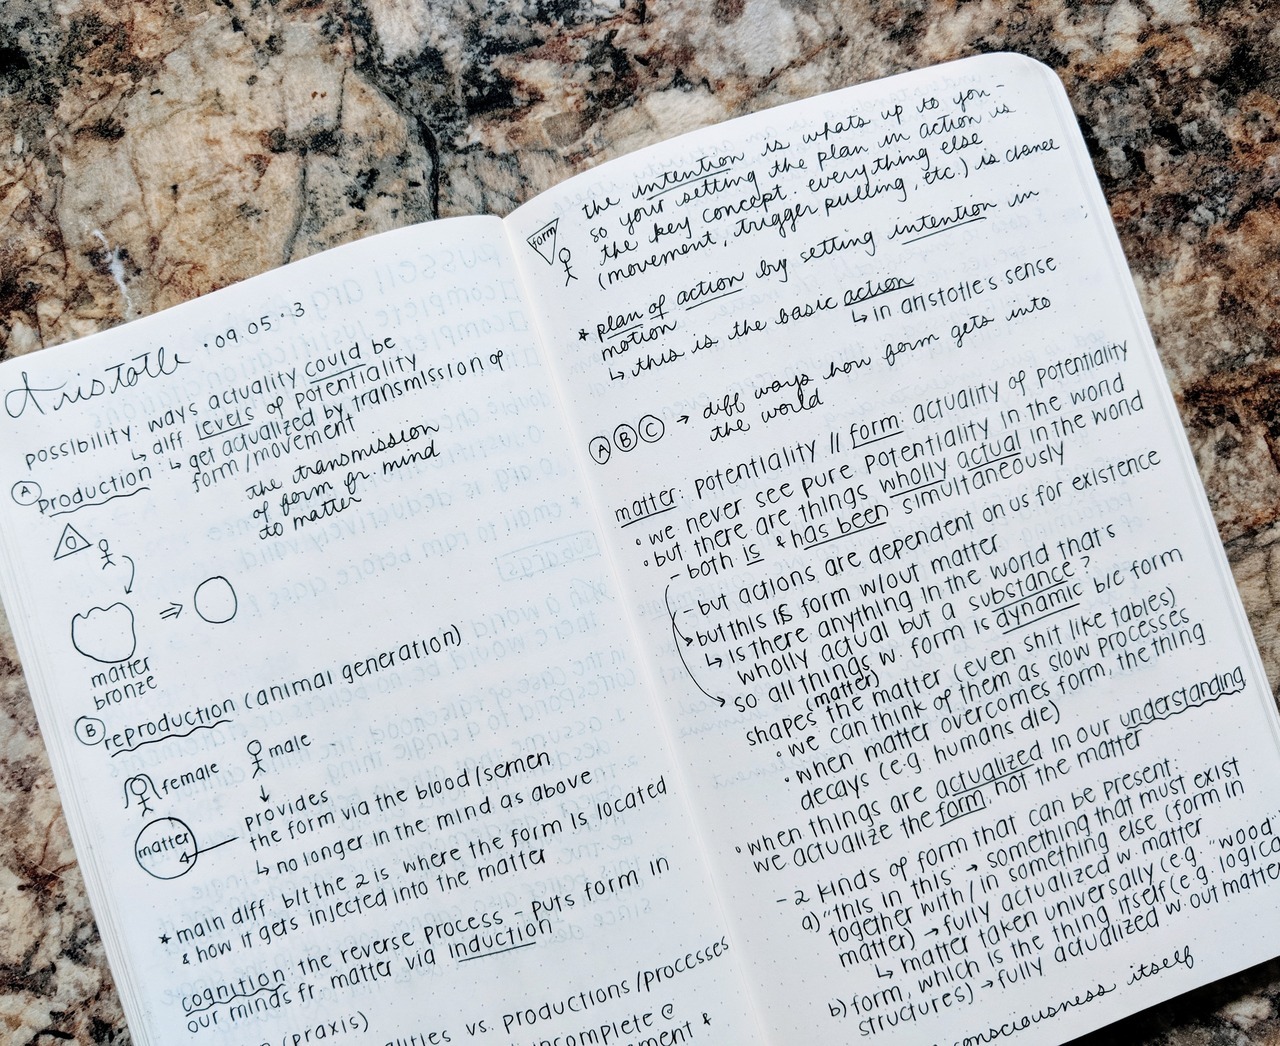 Aristotle · 09.05.3
possibility: ways actuality could be
↳ diff levels of potentiality
↳ get actualized by transmission of
form/movement
Ⓐ production
the transmission
of form fr. mind
to matter
⇒
matter
bronze
Ⓑ reproduction (animal generation)
female
male
↓
provides
matter
the form via the blood/semen
↳ no longer in the mind as above
* main diff. b/t the 2 is where the form is located
& how it gets injected into the matter
cognition: the reverse process - puts form in
our minds fr. matter via induction
(praxis)
vs. productions/processes
incomplete @
&
form
the intention is whats up to you -
so your setting the plan in action is
the key concept. everything else
(movement, trigger pulling, etc.) is chance
* plan of action by setting intention in
motion
↳ this is the basic action
↳ in aristotle's sense
Ⓐ Ⓑ Ⓒ → diff ways how form gets into
the world
matter: potentiality // form: actuality of potentiality
• we never see pure potentiality in the world
• but there are things wholly actual in the world
- both is & has been simultaneously
- but actions are dependent on us for existence
but this is form w/out matter
↳ is there anything in the world that's
wholly actual but a substance?
so all things w. form is dynamic b/c form
(matter)
shapes the matter (even shit like tables)
• we can think of them as slow processes
• when matter overcomes form, the thing
decays (e.g. humans die)
• when things are actualized in our understanding
we actualize the form, not the matter
- 2 kinds of form that can be present:
a) "this in this" → something that must exist
together with/in something else (form in
matter) → fully actualized w. matter
↳ matter taken universally (e.g. "wood"
b) form, which is the thing itself (e.g. logical
structures) → fully actualized w.out matter
consciousness itself